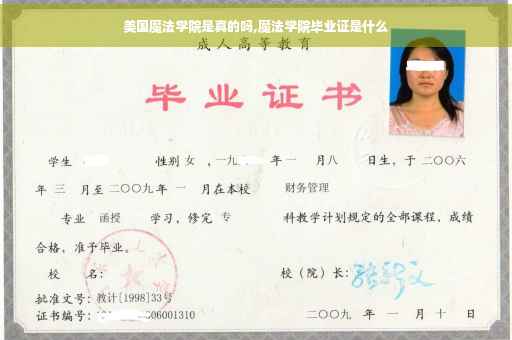 美国魔法学院是真的吗,魔法学院毕业证是什么
成人高等教育
毕业证书
学生 性别 女 ,一九 年 一 月八 日生，于 二〇〇六
年 三 月至 二〇〇九 年 一 月在本校 财务管理
专业 函授 学习，修完 专 科教学计划规定的全部课程，成绩
合格，准予毕业。
校 名： 校（院）长：
批准文号：教计[1998]33号
证书编号： 06001310 二〇〇九 年 一 月 十 日